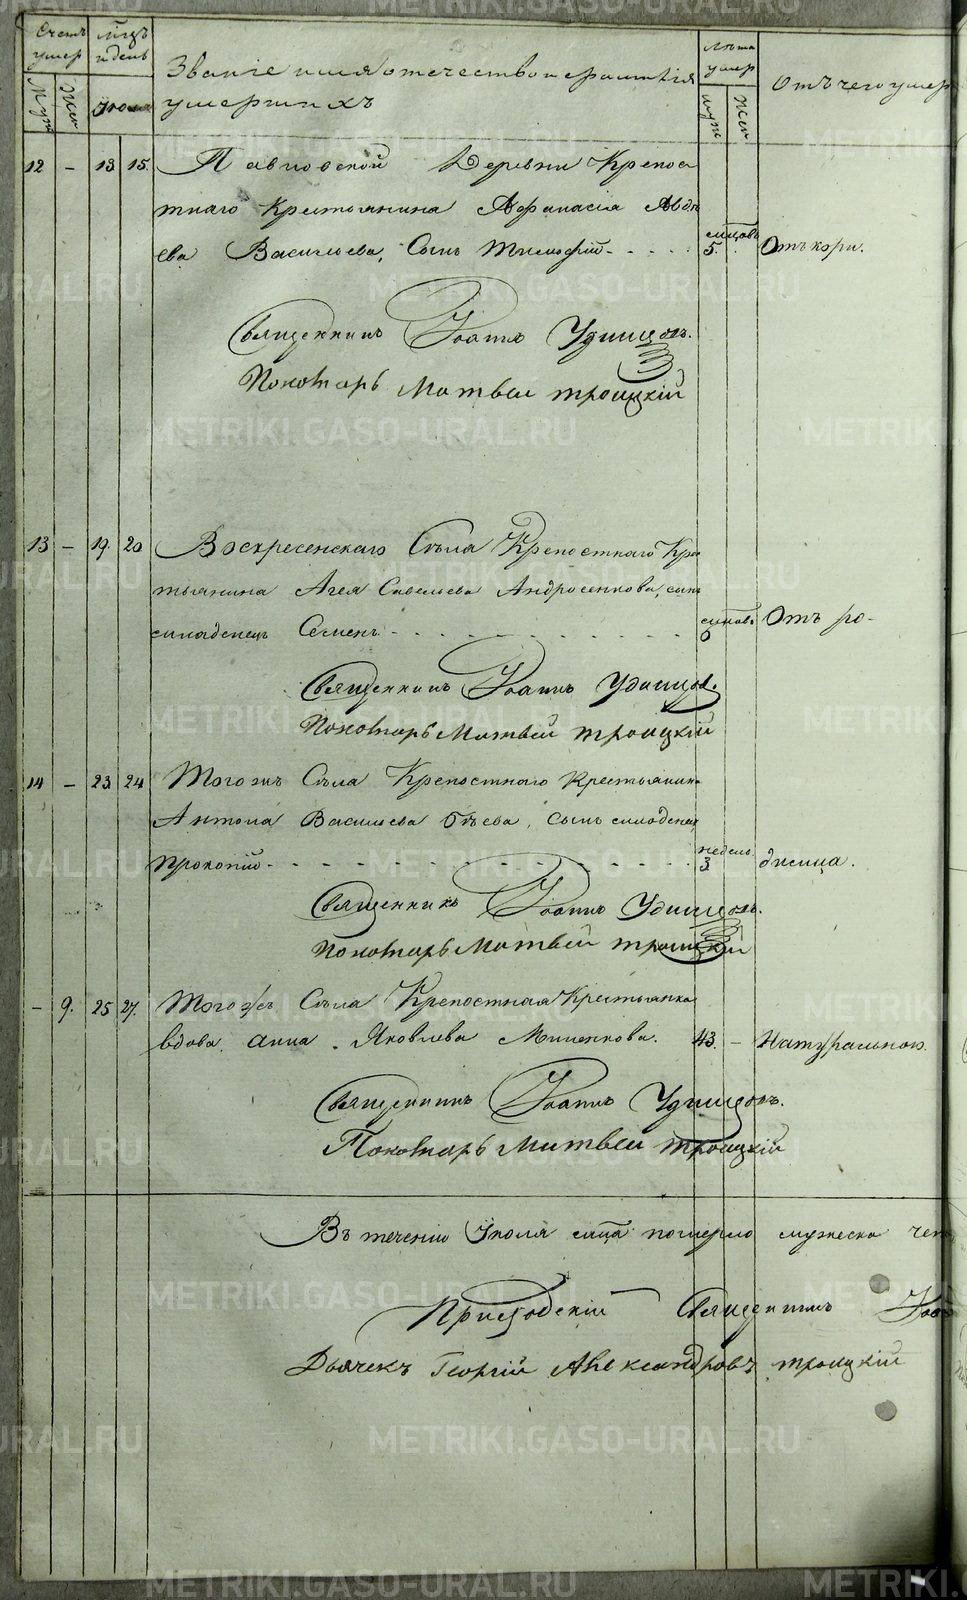 METRIKI.GASO-URAL.RU
Счетъ умер
мцъ и день
Званіе имя отечество и фамилія
умершихъ
Лѣта умер
Отъ чего умер
Муж
Жен
Іюля
муж
Жен
12 – 13 15. Павловской Деревни Крепос
тнаго Крестьянина Афанасія Авдѣ
ева Васильева, Сынъ Тимофій - - - - мцовъ 5. Отъ кори.
Священникъ Іоаннъ Удинцовъ.
Пономарь Матвеи Троицкій
13 – 19. 20 Воскресенскаго Съла Крепостнаго Кре
тьянина Агея Савельева Андросенкова, сынъ
младенецъ Семенъ - - - - 6 Отъ ро-
Священникъ Іоаннъ Удинцов.
Пономарь Матвей Троицкій
14 – 23 24 Того жъ Съла Крепостнаго Крестьянин
Антона Васильева сынъ младенец
Прокопій - - - - недель 3
Священникъ Іоаннъ Удинцовъ.
Пономарь Матвей Троицкій
– 9. 25 27. Того жъ Съла Крепостная Крестьянка
вдова Анна Яковлева 43. – Натуральною.
Священникъ Іоаннъ Удинцовъ.
Пономарь Матвеи Троицкій
Въ теченіи Іюля мца померло мужеска
Приходскій Священникъ Іоа
Дьячекъ Георгій Александровъ Троицкій